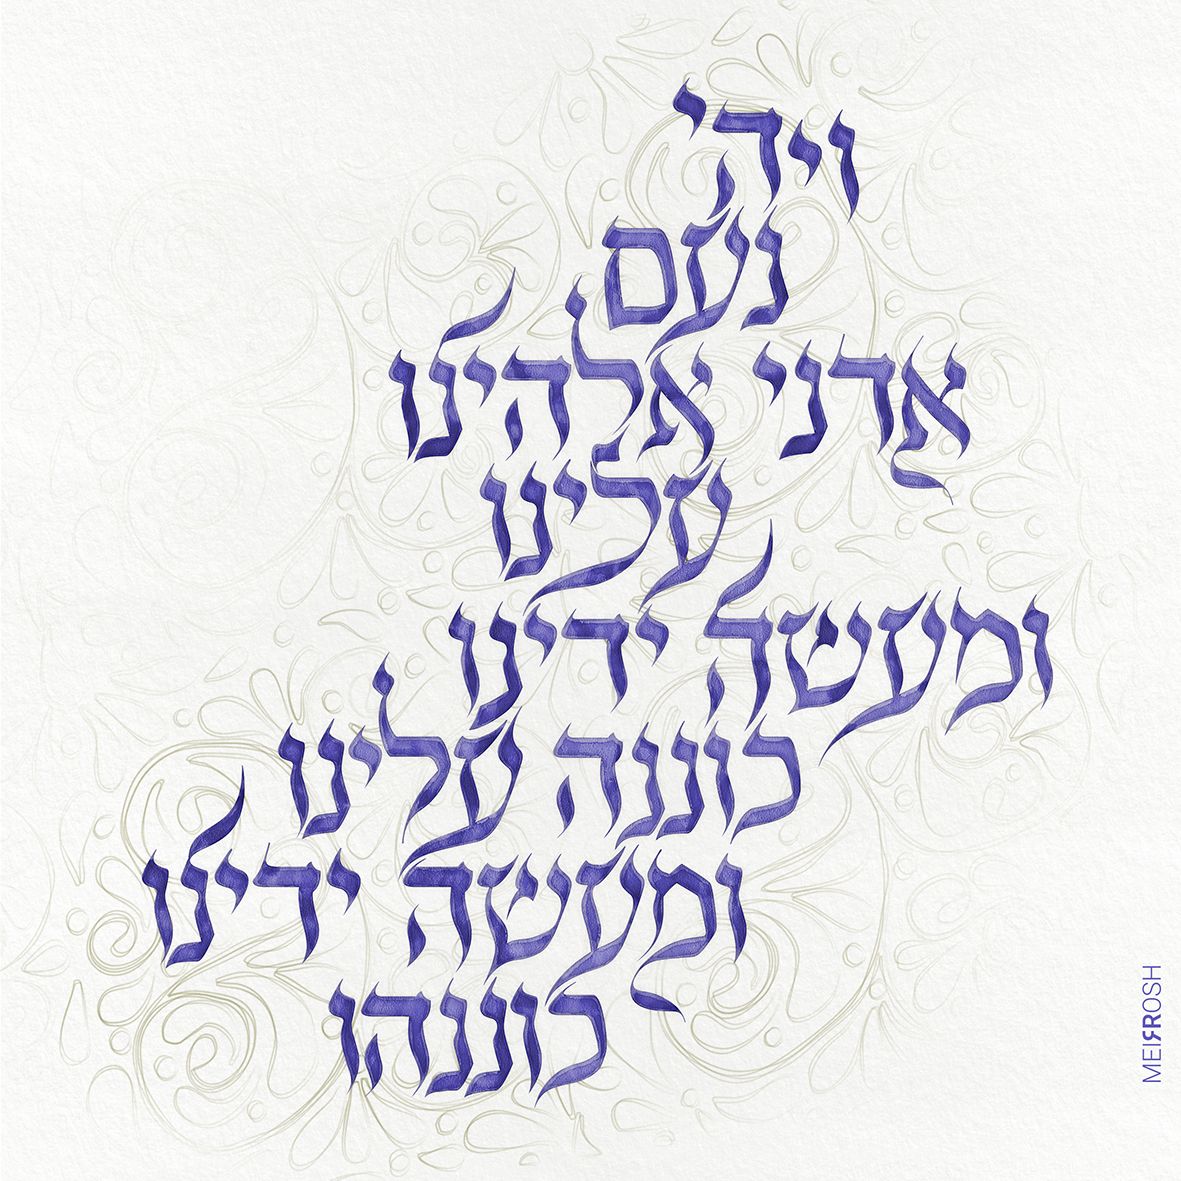 ויהי
נעם
אדני אלהינו
עלינו
ומעשה ידינו
כוננה עלינו
ומעשה ידינו
כוננהו
MEIRROSH